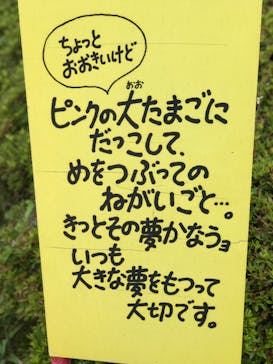 ちょっと
おおきいけど
ピンクの大たまごに
おお
だっこして、
めをつぶっての
ねがいごと…。
きっとその夢かなうョ
いつも
大きな夢をもつって
大切です。